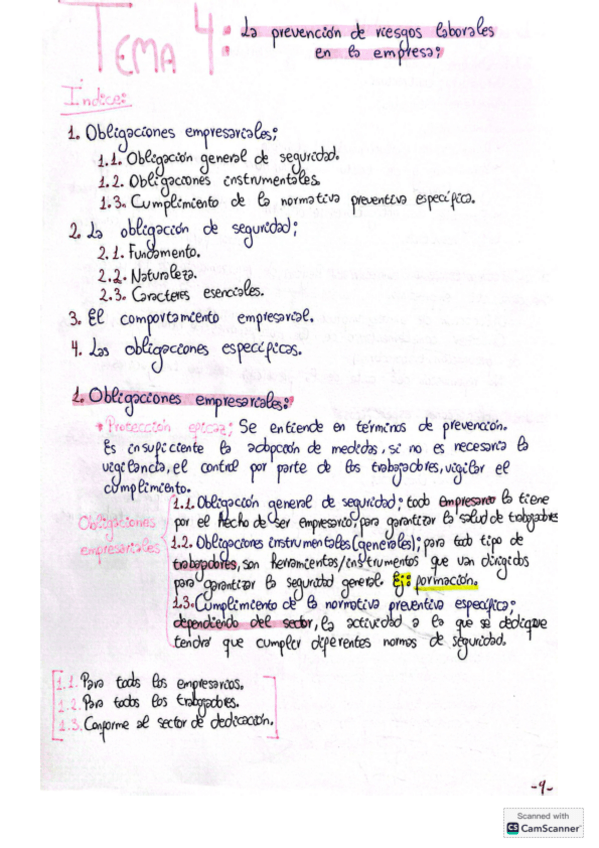 TEMA 4: La prevención de riesgos laborales
en la empresa;
Índice:
1. Obligaciones empresariales;
1.1. Obligación general de seguridad.
1.2. Obligaciones instrumentales.
1.3. Cumplimiento de la normativa preventiva específica.
2. La obligación de seguridad;
2.1. Fundamento.
2.2. Naturaleza.
2.3. Caracteres esenciales.
3. El comportamiento empresarial.
4. Las obligaciones específicas.
1. Obligaciones empresariales:
* Protección eficaz; Se entiende en términos de prevención.
Es insuficiente la adopción de medidas, si no es necesaria la
vigilancia, el control por parte de los trabajadores, vigilar el
cumplimiento.
Obligaciones
empresariales
1.1. Obligación general de seguridad; todo empresario la tiene
por el hecho de ser empresario, para garantizar la salud de trabajadores
1.2. Obligaciones instrumentales (generales); para todo tipo de
trabajadores, son herramientas/instrumentos que van dirigidos
para garantizar la seguridad general. Ej: formación.
1.3. Cumplimiento de la normativa preventiva específica;
dependiendo del sector, la actividad a la que se dedique
tendrá que cumplir diferentes normas de seguridad.
1.1. Para todos los empresarios.
1.2. Para todos los trabajadores.
1.3. Conforme al sector de dedicación.
-1-
Scanned with
CS CamScanner